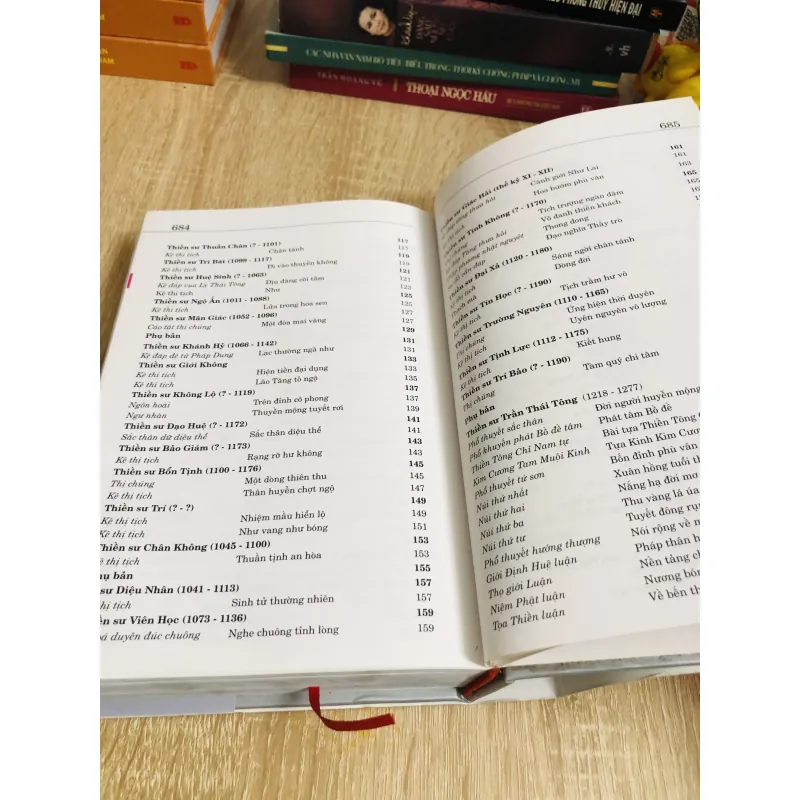 PHONG THỦY HIỆN ĐẠI
vh
CÁC NHÀ VĂN NAM BỘ TIÊU BIỂU TRONG THỜI KỲ CHỐNG PHÁP VÀ CHỐNG MỸ
TRẦN HOÀNG VŨ THOẠI NGỌC HẦU
684
Thiền sư Thuần Chân (? - 1101) 117
Kệ thị tịch Chân tánh 117
Thiền sư Trì Bát (1099 - 1117) 119
Kệ thị tịch Đi vào thuyền không 119
Thiền sư Huệ Sinh (? - 1063) 121
Kệ đáp vua Lý Thái Tông Dịu dàng cõi tâm 123
Kệ thị tịch Như 123
Thiền sư Ngộ Ấn (1011 - 1088) 125
Kệ thị tịch Lửa trong hoa sen 125
Thiền sư Mãn Giác (1052 - 1096) 127
Cáo tật thị chúng Một đóa mai vàng 127
Phụ bản 129
Thiền sư Khánh Hỷ (1066 - 1142) 131
Kệ đáp đệ tử Pháp Dung Lạc thường ngã như 131
Thiền sư Giới Không 133
Kệ thị tịch Hiện tiền đại dụng 133
Kệ thị tịch Lão Tăng tỏ ngộ 135
Thiền sư Không Lộ (? - 1119) 137
Ngôn hoài Trên đỉnh cô phong 137
Ngư nhàn Thuyền mộng tuyết rơi 139
Thiền sư Đạo Huệ (? - 1172) 141
Sắc thân dữ diệu thể Sắc thân diệu thể 141
Thiền sư Bảo Giám (? - 1173) 143
Kệ thị tịch Rạng rỡ hư không 143
Thiền sư Bổn Tịnh (1100 - 1176) 145
Thị chúng Một dòng thiên thu 145
Kệ thị tịch Thân huyễn chợt ngộ 147
Thiền sư Trí (? - ?) 149
Kệ thị tịch Nhiệm mầu hiển lộ 149
Kệ thị tịch Như vang như bóng 151
Thiền sư Chân Không (1045 - 1100) 153
Kệ thị tịch Thuần tịnh an hòa 153
Phụ bản 155
sư Diệu Nhân (1041 - 1113) 157
thị tịch Sinh tử thường nhiên 157
sư Viên Học (1073 - 1136) 159
duyên đúc chuông Nghe chuông tỉnh lòng 159
685
161
Thiền sư Giác Hải (thế kỷ XI - XII) 161
Cảnh giới Như Lai 163
Hoa bướm phù vân 165
Thiền sư Tịnh Không (? - 1170) 165
Tích trượng ngàn dặm
Vô danh thiền khách
Thong dong
Đạo nghĩa Thầy trò
Thiền sư Đại Xả (1120 - 1180)
Sáng ngời chân tánh
Dòng đời
Thiền sư Tín Học (? - 1190)
Kệ thị tịch Tịch trầm hư vô
Thiền sư Trường Nguyên (1110 - 1165)
Thị chúng Ứng hiện thời duyên
Kệ thị tịch Uyên nguyên vô lượng
Thiền sư Tịnh Lực (1112 - 1175)
Kệ thị tịch Kiết hung
Thiền sư Trí Bảo (? - 1190)
Thị chúng Tam quỹ chi tâm
Phụ bản
Thiền sư Trần Thái Tông (1218 - 1277)
Phổ thuyết sắc thân Đời người huyền mộng
Phổ khuyến phát Bồ đề tâm Phát tâm Bồ đề
Thiền Tông Chỉ Nam tự Bài tựa Thiền Tông
Kim Cương Tam Muội Kinh Tựa Kinh Kim Cương
Phổ thuyết tứ sơn Bốn đỉnh phù vân
Núi thứ nhất Xuân hồng tuổi
Núi thứ hai Nắng hạ đời mơ
Núi thứ ba Thu vàng lá úa
Núi thứ tư Tuyết đông rụ
Phổ thuyết hướng thượng Nói rộng về
Giới Định Huệ Luận Pháp thân
Thọ giới Luận Nền tảng
Niệm Phật luận Nương bón
Tọa Thiền luận Về bến